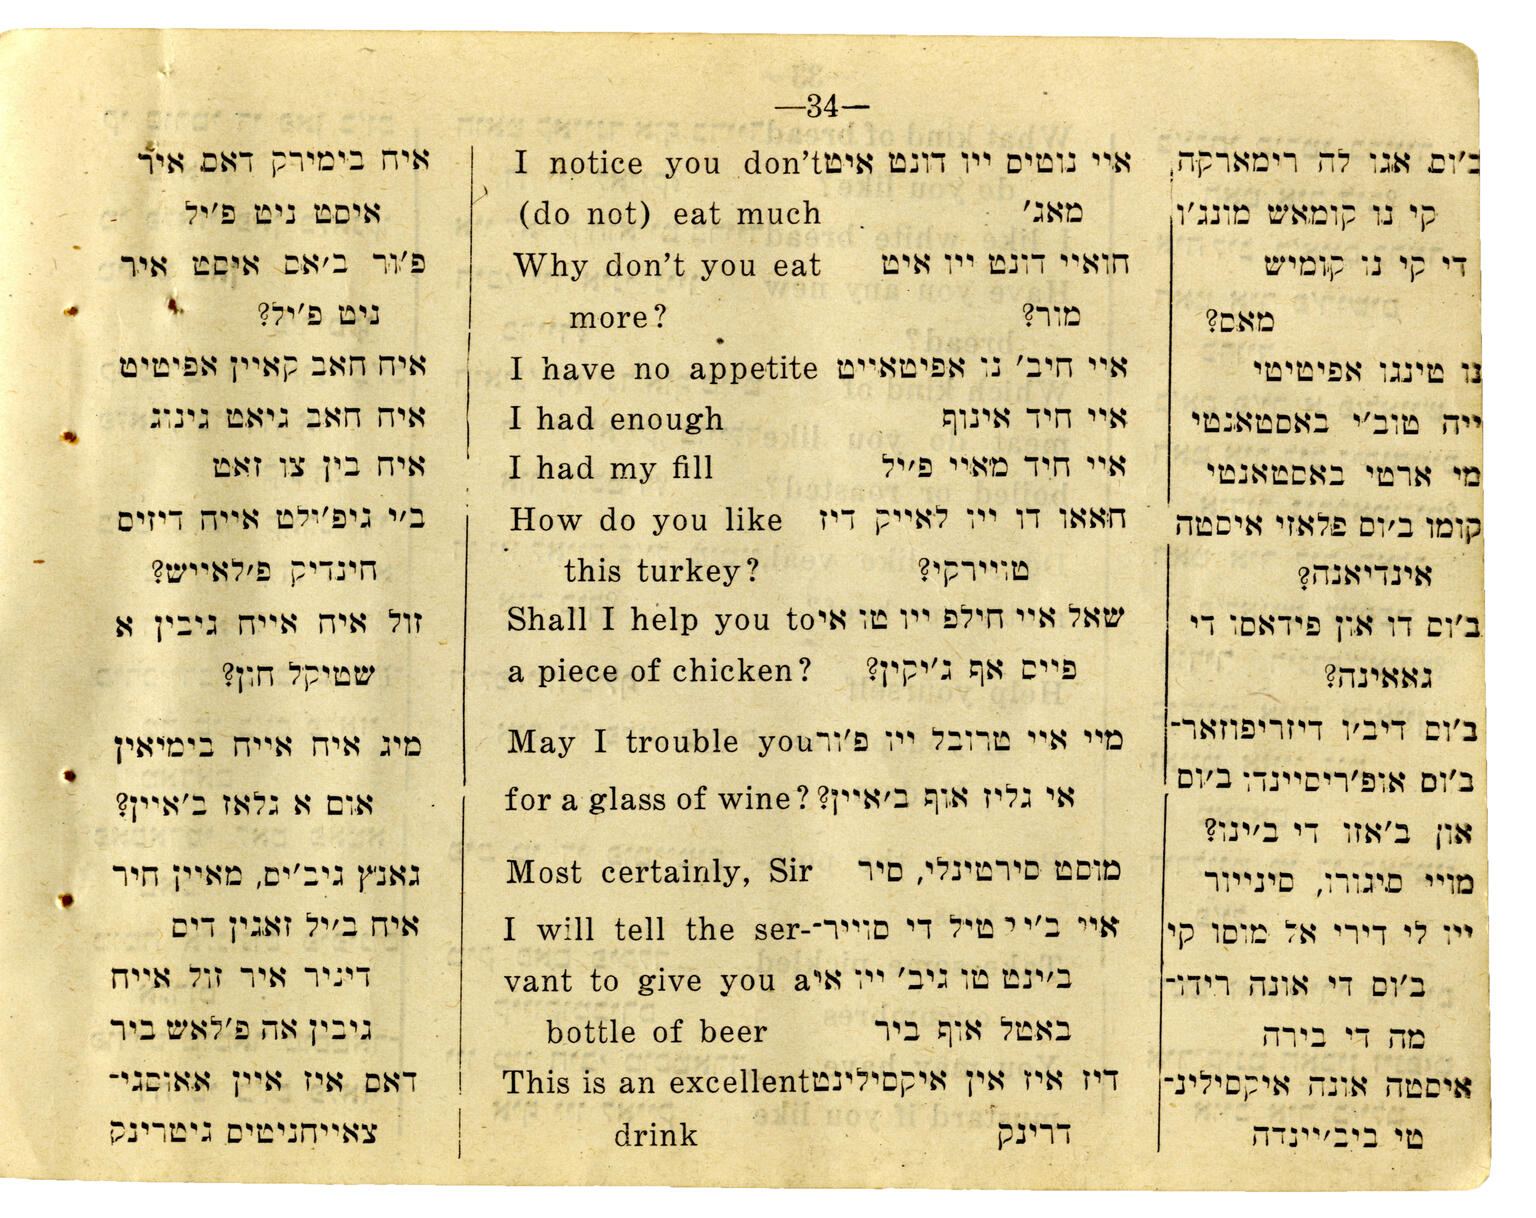 —34—
I notice you don't איי נוטיס ייו דונט איט
(do not) eat much מאג׳
Why don't you eat חואיי דונט ייו איט
more? מור?
I have no appetite איי חיב׳ נו אפיטאייט
I had enough איי חיד אינוף
I had my fill איי חיד מאיי פ׳יל
How do you like חאאו דו ייו לאייק דיז
this turkey? טויירקי?
Shall I help you to שאל איי חילפ ייו טו אי
a piece of chicken? פייס אף ג׳יקין?
May I trouble you מיי איי טרובל ייו פ׳ור
for a glass of wine? אי גליז אוף ב׳איין?
Most certainly, Sir מוסט סירטינלי, סיר
I will tell the ser- איי ב׳יי טיל די סוייר־
vant to give you a ב׳ינט טו גיב׳ ייו אי
bottle of beer באטל אוף ביר
This is an excellent דיז איז אין איקסילינט
drink דרינק
ב׳וס אגו לה רימארקה,
קי נו קומאש מונג׳ו
די קי נו קומיש
מאס?
נו טינגו אפיטיטי
ייה טוב׳י באסטאנטי
מי ארטי באסטאנטי
קומו ב׳וס פלאזי איסטה
אינדיאנה?
ב׳וס דו און פידאסו די
גאאינה?
ב׳וס דיב׳ו דיזריפוזאר־
ב׳וס אופ׳ריסיינדו ב׳וס
און ב׳אזו די ב׳ינו?
מויי סיגורו, סינייור
ייו לי דירי אל מוסו קי
ב׳וס די אונה רידו־
מה די בירה
איסטה אונה איקסילינ־
טי ביב׳יינדה
איח בימירק דאס איר
איסט ניט פ׳יל
פ׳ור ב׳אס איסט איר
ניט פ׳יל?
איח חאב קאיין אפיטיט
איח חאב גיאט גינוג
איח בין צו זאט
ב׳י גיפ׳ילט אייח דיזיס
חינדיק פ׳לאייש?
זול איח אייח גיבין א
שטיקל חון?
מיג איח אייח בימיאין
אום א גלאז ב׳איין?
גאנץ גיב׳יס, מאיין חיר
איח ב׳יל זאגין דיס
דיניר איר זול אייח
גיבין אה פ׳לאש ביר
דאס איז איין אאוסגי־
צאייחניטיס גיטרינק